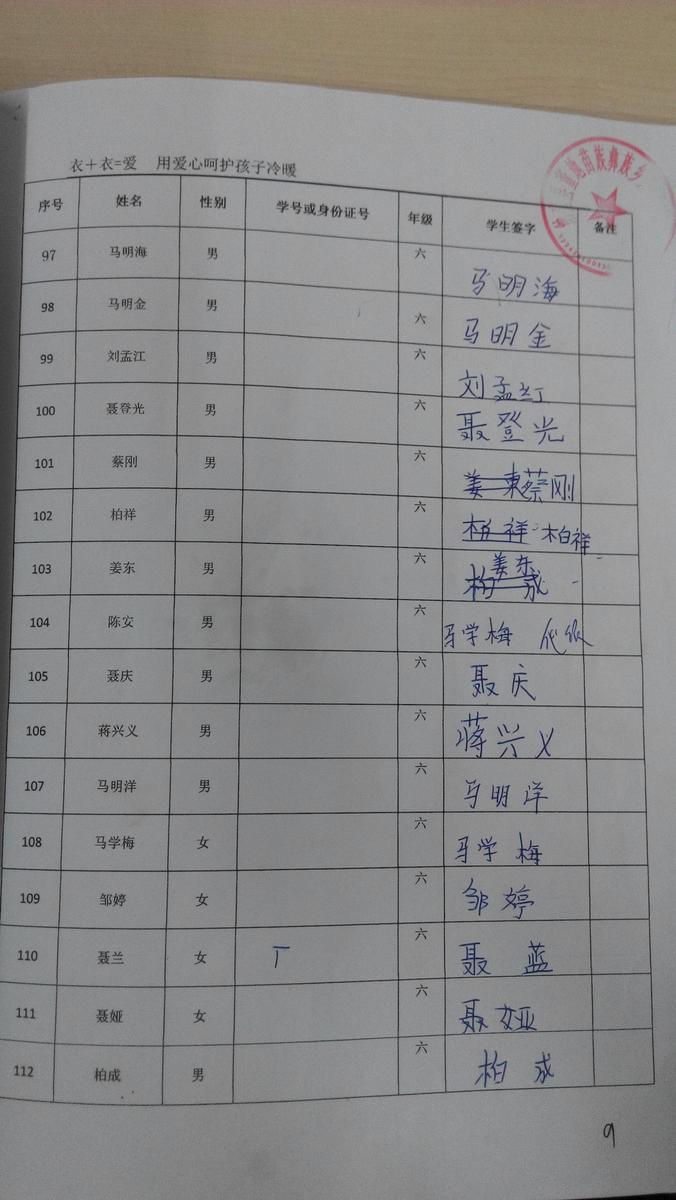 衣+衣=爱 用爱心呵护孩子冷暖
序号 姓名 性别 学号或身份证号 年级 学生签字 备注
97 马明海 男 六 马明海
98 马明金 男 六 马明金
99 刘孟江 男 六 刘孟江
100 聂登光 男 六 聂登光
101 蔡刚 男 六 姜东 蔡刚
102 柏祥 男 六 柏祥 柏祥
103 姜东 男 六 柏成 姜东
104 陈安 男 六 马学梅
105 聂庆 男 六 聂庆
106 蒋兴义 男 六 蒋兴义
107 马明洋 男 六 马明洋
108 马学梅 女 六 马学梅
109 邹婷 女 六 邹婷
110 聂兰 女 六 聂蓝
111 聂娅 女 六 聂娅
112 柏成 男 六 柏成
苗族彝族乡
9